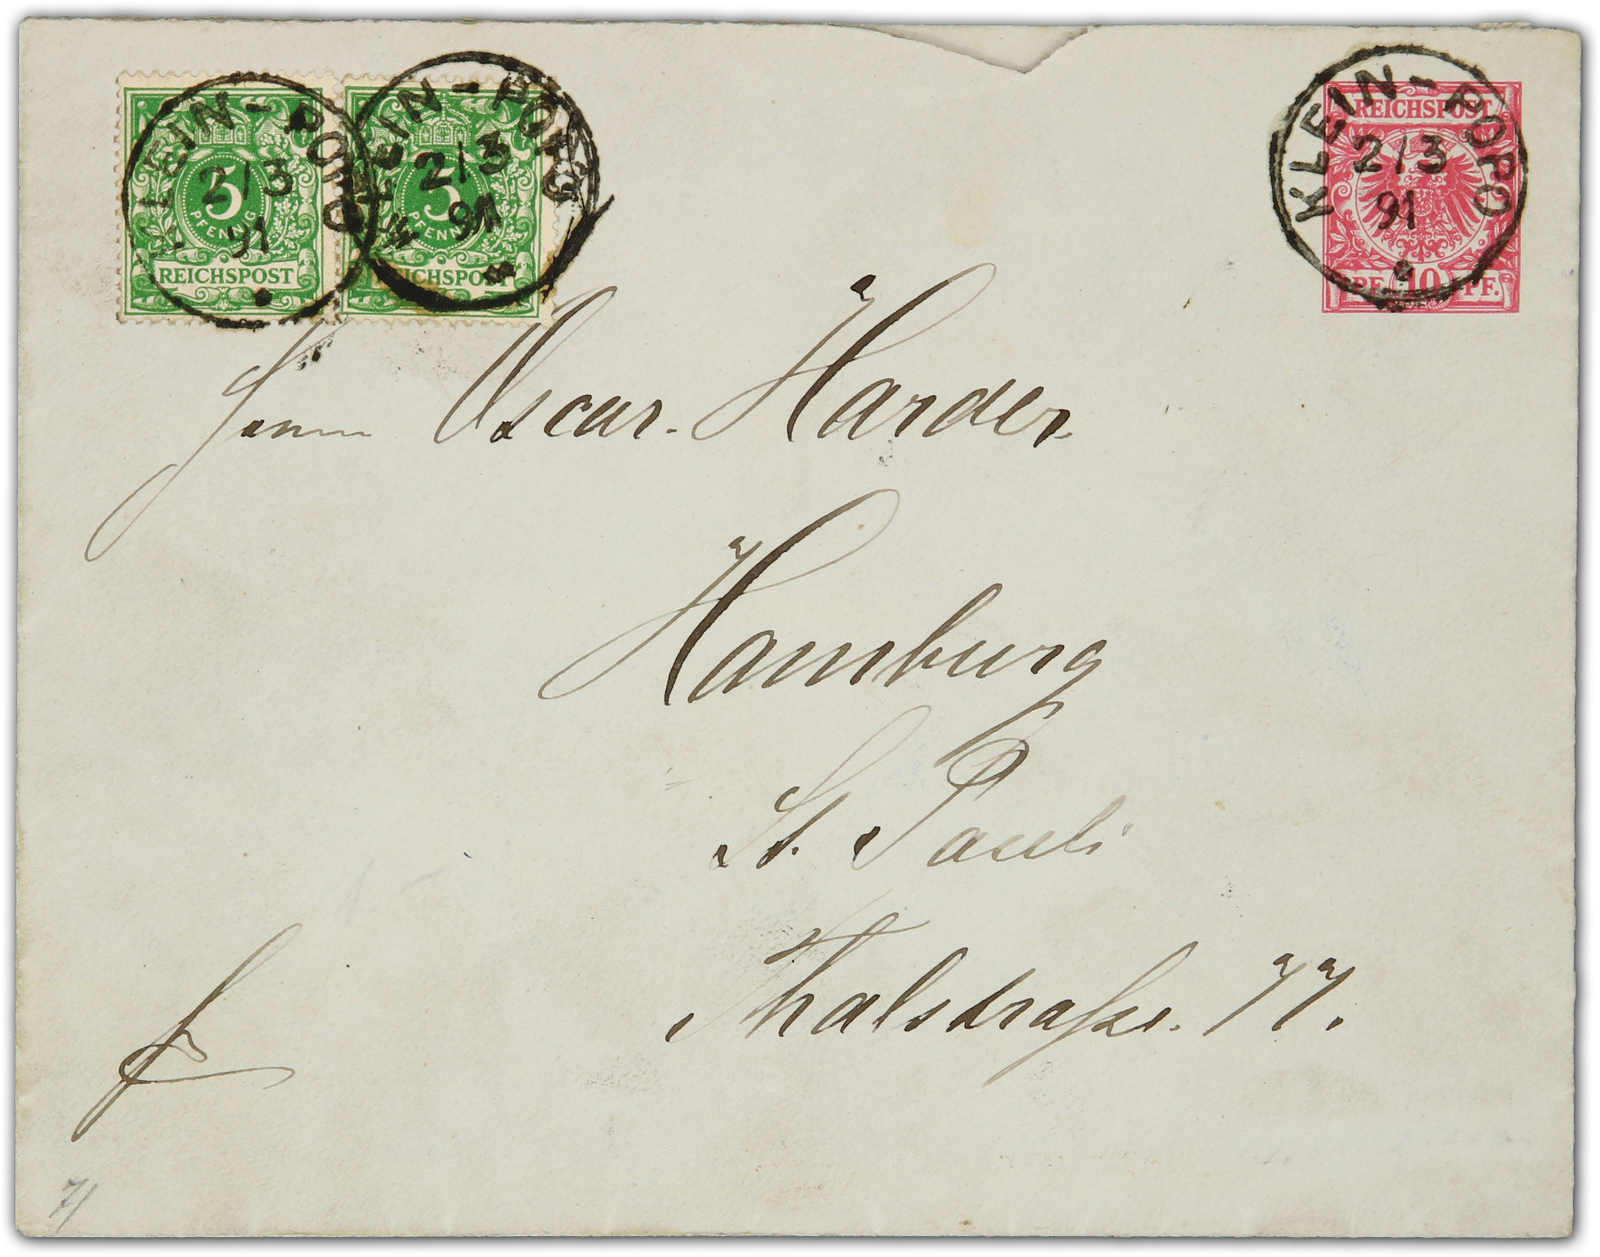 KLEIN-POPO
2/3
91
5
PFENNIG
REICHSPOST
KLEIN-POPO
2/3
91
5
PFENNIG
REICHSPOST
KLEIN-POPO
2/3
91
REICHSPOST
PF. 10 PF.
Herrn Oscar Harder
Hamburg
St. Pauli
Thalstraße. 77.